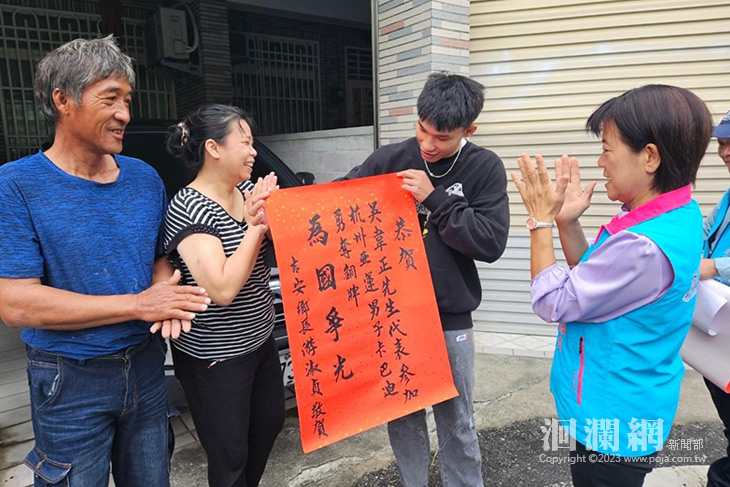 恭賀
吳韋正先生代表參加
杭州亞運男子卡巴迪
勇奪銅牌
為國爭光
吉安鄉長游淑貞敬賀
洄瀾網 新聞部
Copyright ©2023 www.poja.com.tw